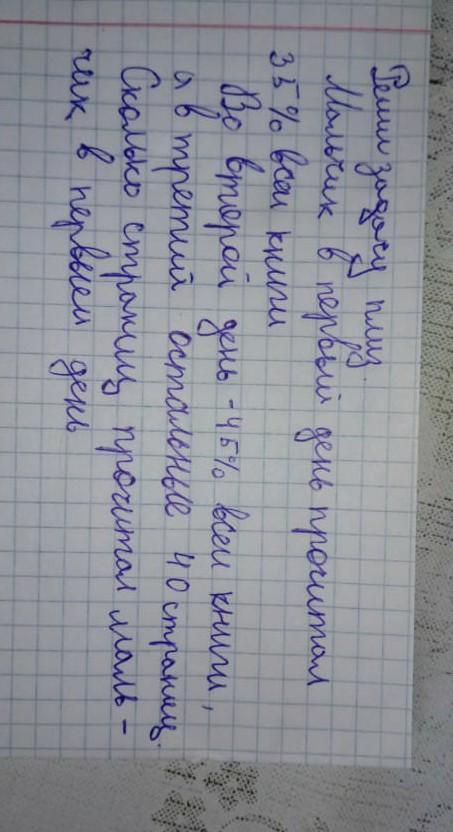 Реши задачу плиз.
Мальчик в первый день прочитал
35% всей книги
Во второй день - 45% всей книги,
а в третий остальные 40 страниц.
Сколько страниц прочитал маль-
чик в первый день